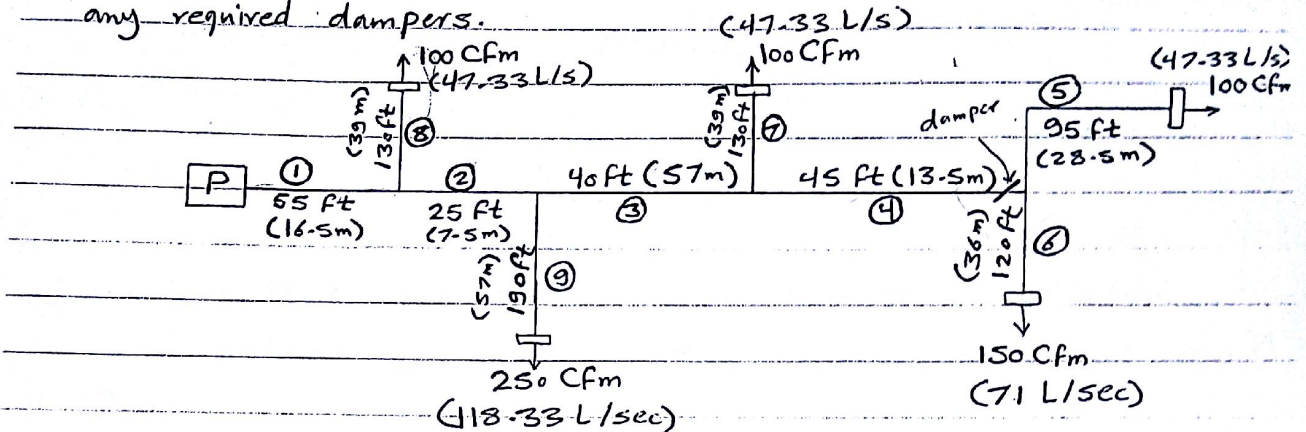 any required dampers.
(47.33 L/s)
100 Cfm
(47.33 L/s)
100 Cfm
(47-33 L/s)
100 Cfm
(39m)
130ft
⑧
(39m)
130ft
⑦
damper
⑤
95 ft
(28.5m)
P
①
55 ft
(16.5m)
②
25 ft
(7.5m)
40ft (57m)
③
45 ft (13.5m)
④
(36m)
120ft
⑥
(57m)
190ft
⑨
250 Cfm
(118.33 L/sec)
150 Cfm
(71 L/sec)